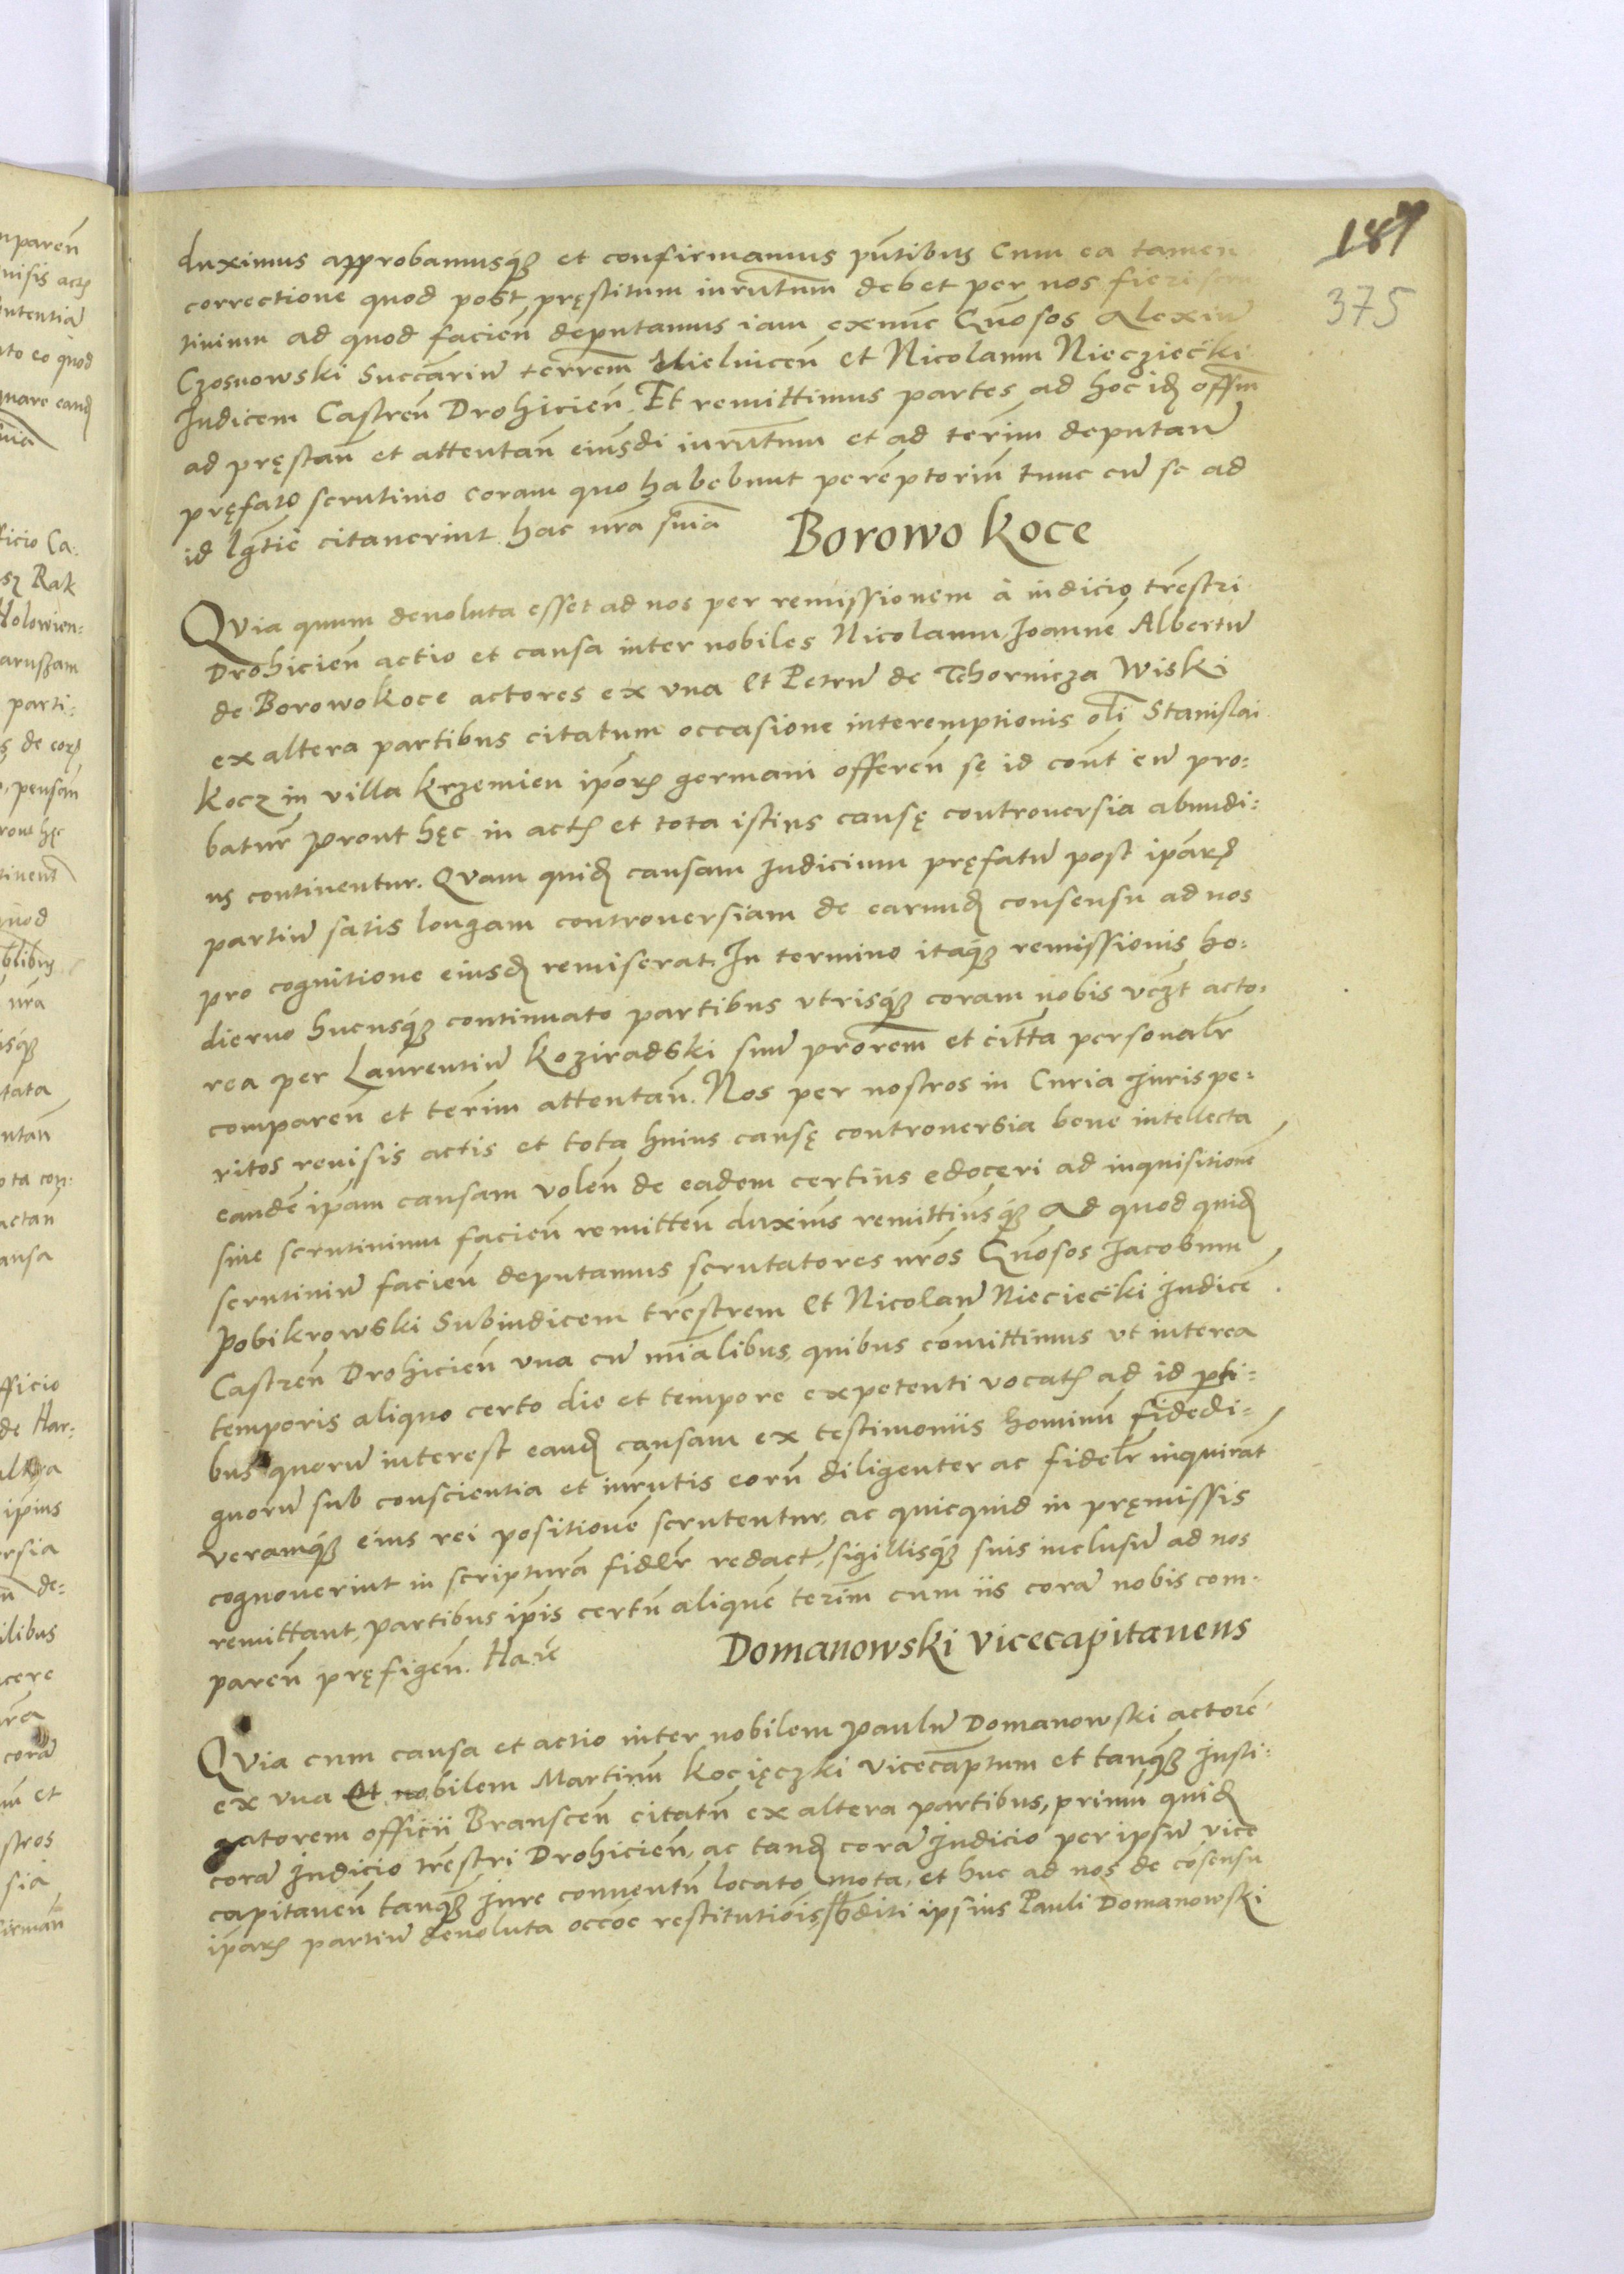 187
375
duximus approbamusq́ue et confirmamus pñtibus Cum ea tamen
correctione quod post pręstitum iurūtum debet per nos fieri scru
tinium ad quod facień deputamus iam exnūc Gńosos Alexiū
Czosnowski Succāriū terrem̄ Mielniceń et Nicolaum Niecziećki
Iudicem Castreń Drohicień. Et remittimus partes ad hoc id offm̄
ad pręstań et attentań eiusdi iurūtum et ad term̄ deputań
pręfato scrutinio coram quo habebunt peremptoriū tunc cū se ad
id lgt̄ie citauerint hac nrā sn̄ia
Borowo Koce
Quia quum deuoluta esset ad nos per remissionem à iudicio tr̄estri
Drohicień actio et causa inter nobiles Nicolaum, Joannē Albertū
de Borowokoce actores ex vna Et Petrū de Tchornicza Wiski
ex altera partibus citatum occasione interemptionis oli Stanislai
Kocz in villa Krzemien ip̄orum germani offereń se id cont̄ eū pro:
baturū prout hęc in actis et tota istius causę controuersia abundi:
us continentur. Quam quidē causam Iudicium pręfatū post ip̄arum
partiū satis longam controuersiam de earundē consensu ad nos
pro cognitione eiusdē remiserat. In termino itaq́ue remissionis ho:
dierno hucusq́ue continuato partibus vtrisq́ue coram nobis vczt acto:
rea per Laurentiū Koziradski suū prōrem et citt̄a personalr̄
compareń et term̄ attentań. Nos per nostros in Curia Jurispe:
ritos reuisis actis et tota huius causę controuersia bene intellecta
eandē ip̄am causam voleń de eadem certius edoceri ad inquisitionē
siue scrutinium facień remitteń duxims̄ remittims̄q́ue Ad quod quidē
scrutiniū facień deputamus scrutatores nrōs Gńosos Jacobum
Pobikrowski Subiudicem tr̄estrem Et Nicolaū Nieciećki Judicē
Castreń Drohicień vna cū mīalibus, quibus cōmittimus vt interea
temporis aliquo certo die et tempore expetenti vocatis ad id parti:
bus quorū interest eandē causam ex testimoniis hominū fidedi:
gnorū sub conscientia et iurūtis eorū diligenter ac fidelr̄ inquirāt
veramq́ue eius rei positionē scrutentur, ac quicquid in pręmissis
cognouerint in scripturā fidelr̄ redactū, sigillisq́ue suis inclusū ad nos
remittant, partibus ip̄is certū aliquē term̄ cum iis corā nobis com:
pareń pręfigeń. Harē
Domanowski Vicecapitaneus
Quia cum causa et actio inter nobilem Paulū Domanowski actorē
ex vna Et nobilem Martinū Kocięczki vicecaptum et tanq́ue Insti:
gatorem officii Branscēn citatū ex altera partibus, primū quidē
corā Judicio tr̄estri Drohicień, ac tandē corā Judicio per ipsū vice
capitaneū tanq́ue Jure conuentū locato mota, et huc ad nos de cōsensu
ip̄arum partiū deuoluta occōe restitutiōis sb̄diti ipsius Pauli Domanowski